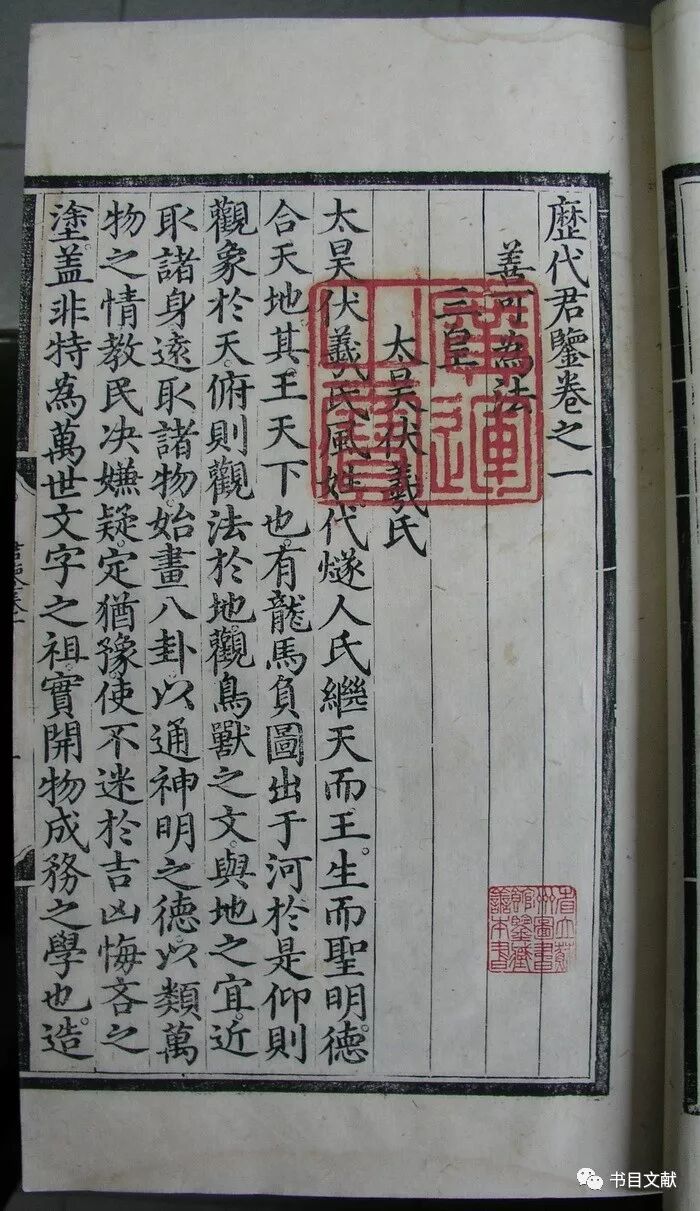 歷代君鑒卷之一
善可為法
三皇
太昊伏羲氏
太昊伏羲氏風姓代燧人氏繼天而王。生而聖明。德
合天地。其王天下也。有龍馬負圖出于河於是仰則
觀象於天。俯則觀法於地。觀鳥獸之文。與地之宜。近
取諸身遠取諸物。始畫八卦以通神明之德以類萬
物之情教民決嫌疑。定猶豫。使不迷於吉凶悔吝之
塗。蓋非特為萬世文字之祖。實開物成務之學也。造
廣運
之寶
书目文献